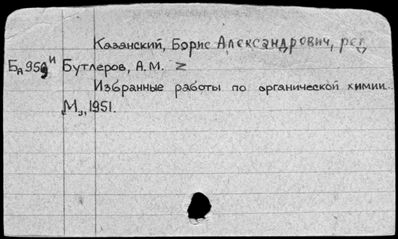 Казанский, Борис Александрович, ред.
Бутлеров, А.М.
Избранные работы по органической химии.
М., 1951.